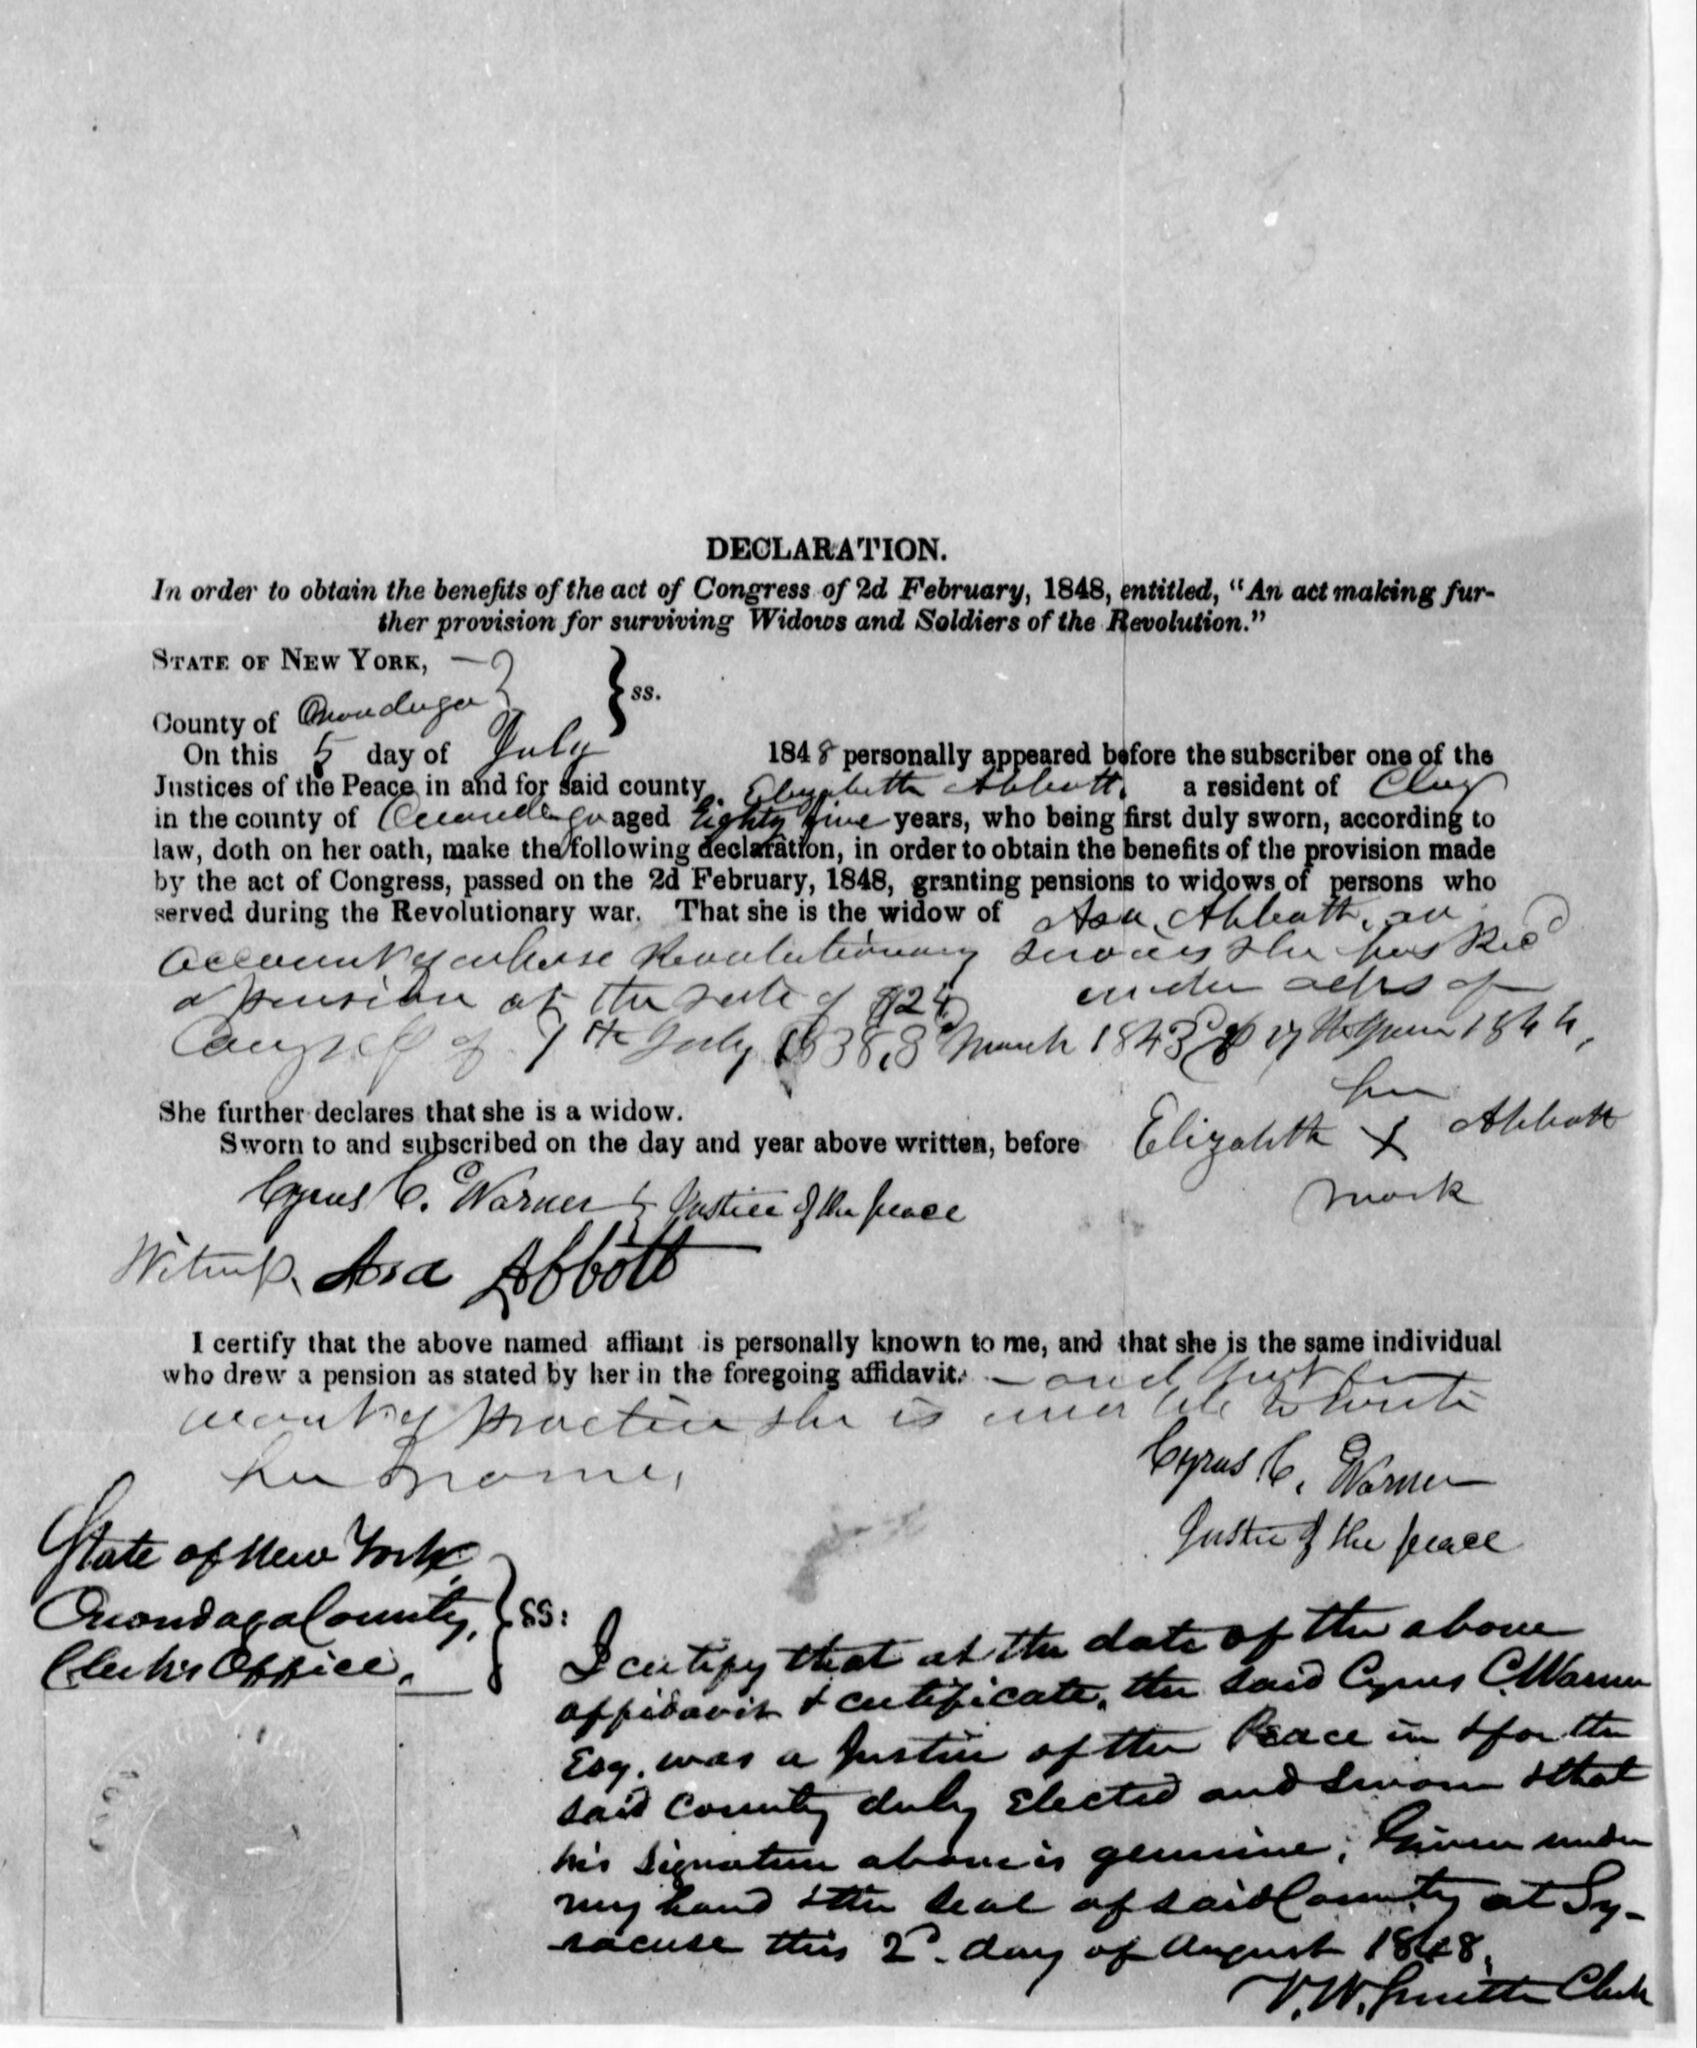 DECLARATION.
In order to obtain the benefits of the act of Congress of 2d February, 1848, entitled, "An act making fur-
ther provision for surviving Widows and Soldiers of the Revolution."
STATE OF NEW YORK,
County of Onondaga } ss.
On this 5 day of July 1848 personally appeared before the subscriber one of the
Justices of the Peace in and for said county Elizabeth Abbott, a resident of Clay
in the county of Onondaga aged Eighty five years, who being first duly sworn, according to
law, doth on her oath, make the following declaration, in order to obtain the benefits of the provision made
by the act of Congress, passed on the 2d February, 1848, granting pensions to widows of persons who
served during the Revolutionary war. That she is the widow of Asa Abbott, on
account of whose Revolutionary services she has Recd
a pension at the rate of $24 under acts of
Congress of 7th July 1838, 3d March 1843 & 17th June 1844,
She further declares that she is a widow.
her
Sworn to and subscribed on the day and year above written, before Elizabeth X Abbott
mark
Cyrus C. Warner } Justice of the peace
Witness, Asa Abbott
I certify that the above named affiant is personally known to me, and that she is the same individual
who drew a pension as stated by her in the foregoing affidavit. — and that for
want of practice she is unable to write
her name,
Cyrus C. Warner
Justice of the peace
State of New York,
Onondaga County, } SS:
Clerk's Office,
I certify that at the date of the above
affidavit & certificate, the said Cyrus C. Warner
Esq. was a Justice of the Peace in & for the
said County duly elected and sworn & that
his signature above is genuine, Given under
my hand & the seal of said County at Sy-
racuse this 2d day of August 1848,
V. W. Smith Clerk